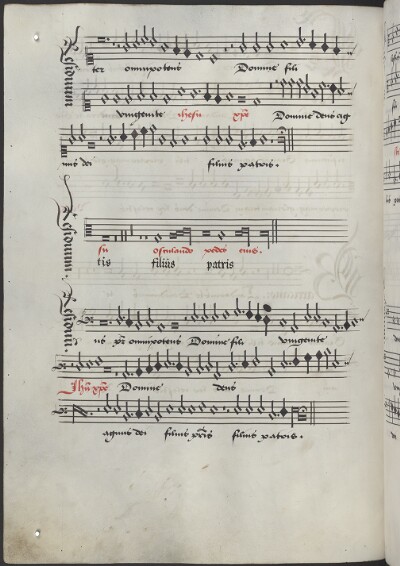 ter omnipotens Domine fili
unigenite ihesu xpe Domine deus ag
nus dei filius patris.
su osculando pedes eius.
tis filius patris
us pr omnipotens Domine fili unigenite
Jhu xpe Domine deus
agnus dei filius pris filius patris.